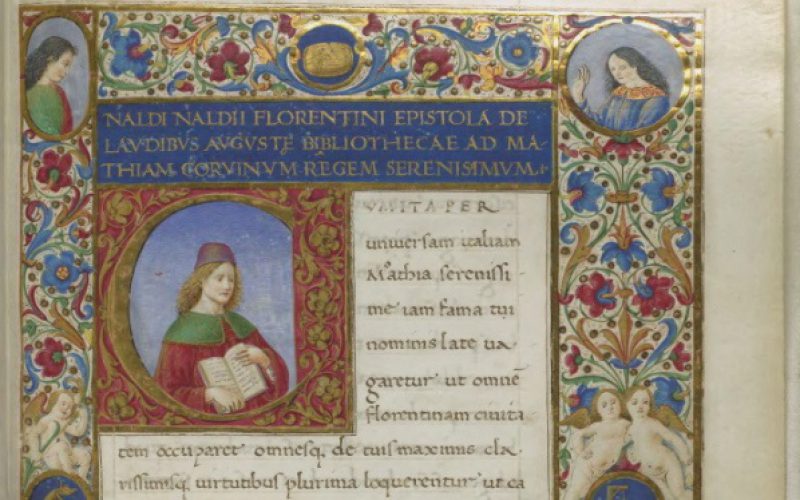 NALDI NALDII FLORENTINI EPISTOLA DE
LAVDIBVS AVGVSTĘ BIBLIOTHECAE AD MA-
THIAM CORVINVM REGEM SERENISIMVM.
CVM ITA PER
universam italiam
Mathia serenissi-
me iam fama tui
nominis late ua
garetur ut omnē
florentinam civita
tem occuparet omnesq. de tuis maximis cla-
rissimisq. virtutibus plurima loquerentur ut ca